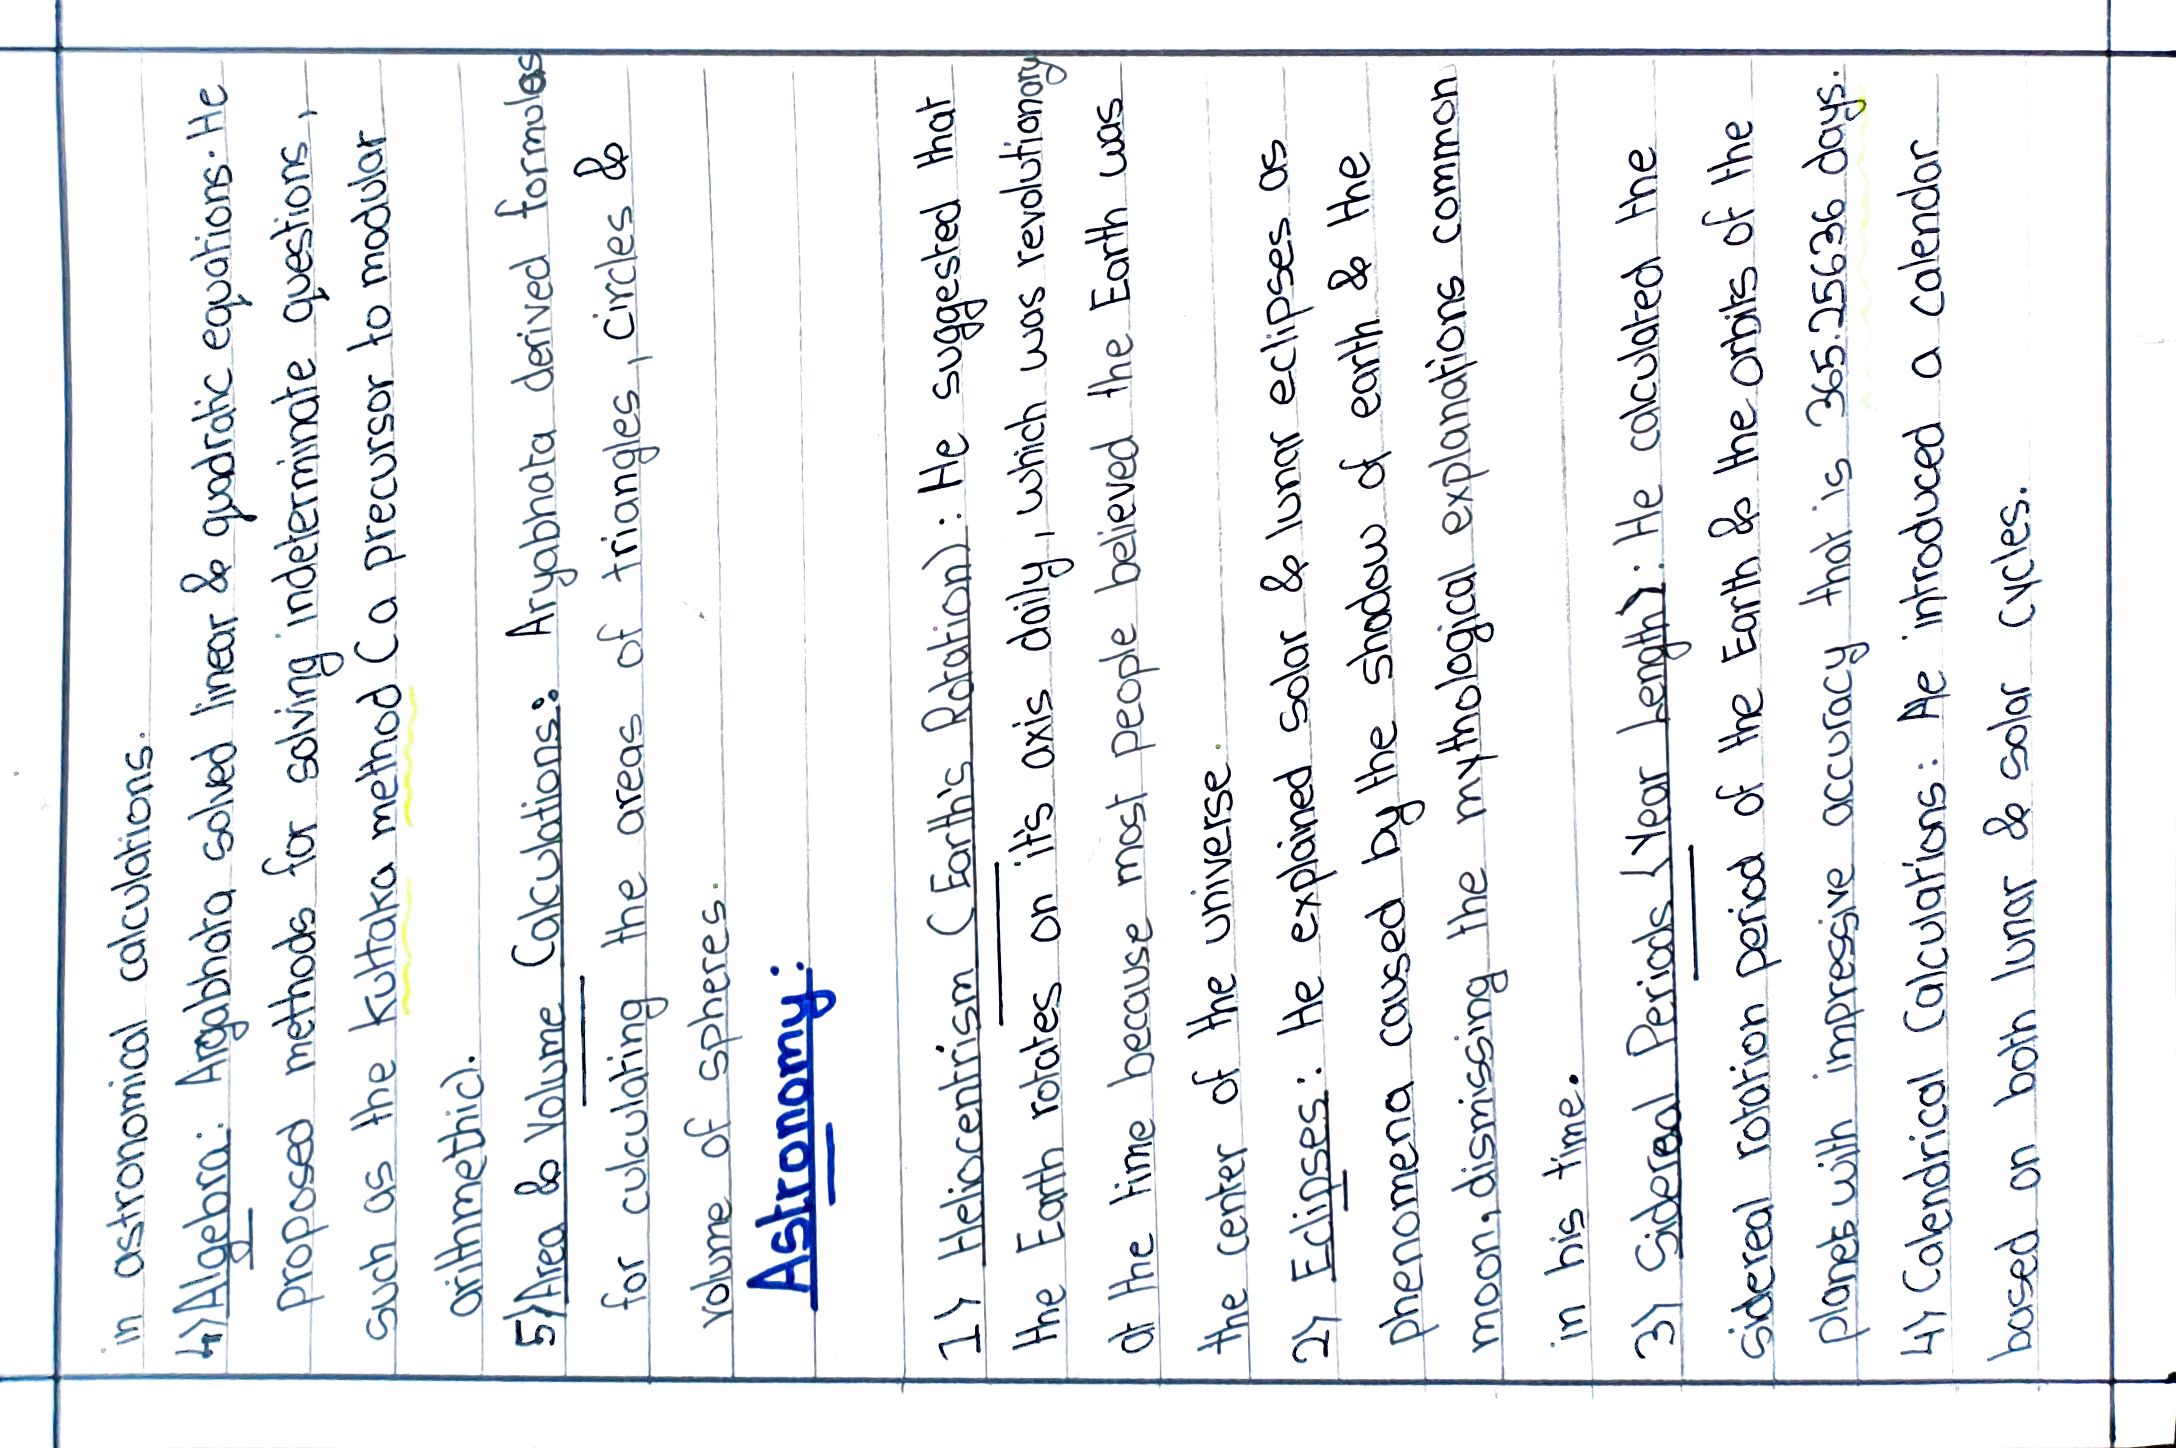 in astronomical calculations.
4) Algebra: Argabhata solved linear & quadratic equations. He
proposed methods for solving indeterminate questions,
such as the kuttaka method (a precursor to modular
arithmethic).
5) Area & Volume Calculations: Aryabhata derived formulas
for culculating the areas of triangles, circles &
volume of spheres.
Astronomy:
1) Heliocentrism (Earth's Rotation): He suggested that
the Earth rotates on it's axis daily, which was revolutionary
at the time because most people believed the Earth was
the center of the universe.
2) Eclipses: He explained solar & lunar eclipses as
phenomena caused by the shadow of earth & the
moon, dismissing the mythological explanations common
in his time.
3) Sidereal Periods {Year Length}: He calculated the
sidereal rotation period of the Earth & the orbits of the
planets with impressive accuracy that is 365.25636 days.
4) Calendrical Calculations: He introduced a calendar
based on both lunar & solar cycles.